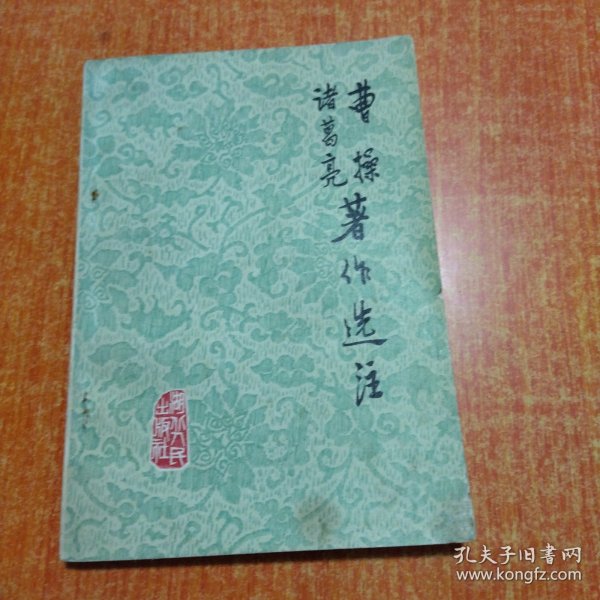 曹操
诸葛亮
著作选注
湖北人民
出版社
孔夫子旧书网
www.kongfz.com